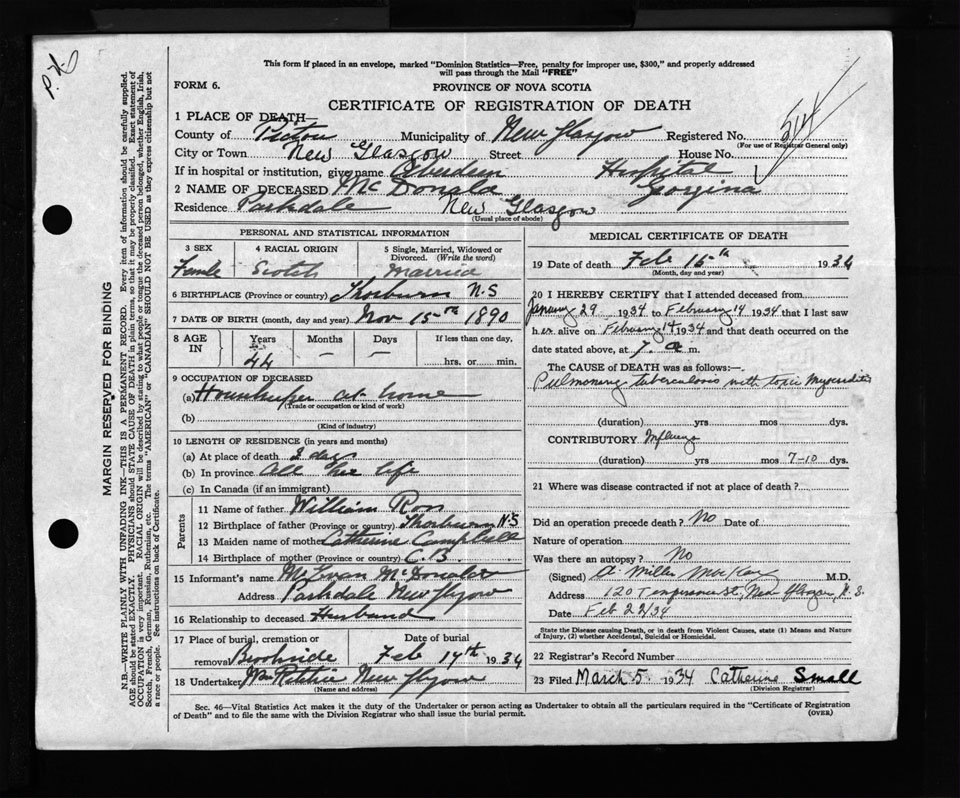 P.X.
This form if placed in an envelope, marked "Dominion Statistics—Free, penalty for improper use, $300," and properly addressed
will pass through the Mail "FREE"
FORM 6.
PROVINCE OF NOVA SCOTIA
CERTIFICATE OF REGISTRATION OF DEATH
1 PLACE OF DEATH—
County of Pictou Municipality of New Glasgow Registered No. 514
(For use of Registrar General only)
City or Town New Glasgow Street House No.
If in hospital or institution, give name Aberdeen Hospital
2 NAME OF DECEASED McDonald Georgina
Residence Parkdale New Glasgow
(Usual place of abode)
PERSONAL AND STATISTICAL INFORMATION
3 SEX 4 RACIAL ORIGIN 5 Single, Married, Widowed or
Divorced. (Write the word)
Female Scotch Married
6 BIRTHPLACE (Province or country) Thorburn N.S
7 DATE OF BIRTH (month, day and year) Nov 15th 1890
8 AGE IN Years Months Days If less than one day,
44 — — hrs. or min.
9 OCCUPATION OF DECEASED
(a) Housekeeper at home
(Trade or occupation or kind of work)
(b)
(Kind of industry)
10 LENGTH OF RESIDENCE (in years and months)
(a) At place of death days
(b) In province All her life
(c) In Canada (if an immigrant)
Parents
11 Name of father William Ross
12 Birthplace of father (Province or country) Thorburn N.S
13 Maiden name of mother Catherine Campbell
14 Birthplace of mother (Province or country) C.B
15 Informant's name McDonald
Address Parkdale New Glasgow
16 Relationship to deceased Husband
17 Place of burial, cremation or removal Date of burial
Brookside Feb 17th 1934
18 Undertaker New Glasgow
(Name and address)
MEDICAL CERTIFICATE OF DEATH
19 Date of death Feb 15th 1934
(Month, day and year)
20 I HEREBY CERTIFY that I attended deceased from
January 29 1934 to February 14 1934 that I last saw
her alive on February 14 1934 and that death occurred on
the date stated above, at 7. a m.
The CAUSE of DEATH was as follows:—
Pulmonary tuberculosis with toxic Myocarditis
(duration) yrs mos dys.
CONTRIBUTORY Influenza
(duration) yrs mos 7-10 dys.
21 Where was disease contracted if not at place of death?
Did an operation precede death? No Date of
Nature of operation
Was there an autopsy? No
(Signed) A. Miller MacKay M.D.
Address 120 Temperance St, New Glasgow, N.S.
Date Feb 22/34
State the Disease causing Death, or in death from Violent Causes, state (1) Means and Nature
of Injury, (2) whether Accidental, Suicidal or Homicidal.
22 Registrar's Record Number
23 Filed March 5 1934 Catherine Small
(Division Registrar)
Sec. 46—Vital Statistics Act makes it the duty of the Undertaker or person acting as Undertaker to obtain all the particulars required in the "Certificate of Registration
of Death" and to file the same with the Division Registrar who shall issue the burial permit.
(OVER)
MARGIN RESERVED FOR BINDING
N.B.—WRITE PLAINLY WITH UNFADING INK—THIS IS A PERMANENT RECORD. Every item of information should be carefully supplied.
AGE should be stated EXACTLY. PHYSICIANS should STATE CAUSE OF DEATH in plain terms, so that it may be properly classified. Exact statement of
OCCUPATION is very important. RACIAL ORIGIN will be described by stating to what people or tongue the deceased person belonged, whether English, Irish,
Scotch, French, German, Russian, Ruthenian, etc. The terms "AMERICAN" or "CANADIAN" SHOULD NOT BE USED as they express citizenship but not
a race or people. See instructions on back of Certificate.